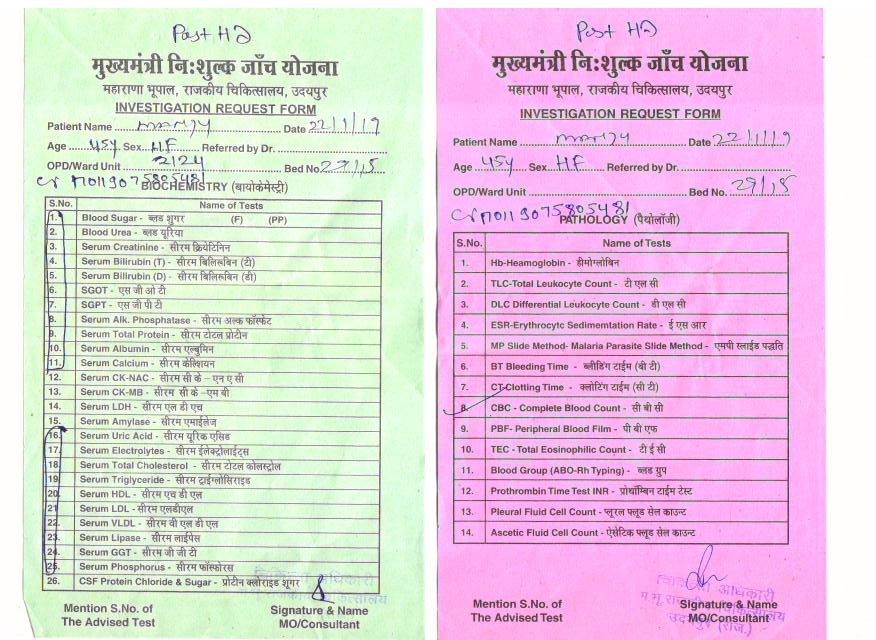 Post HD
मुख्यमंत्री नि:शुल्क जाँच योजना
महाराणा भूपाल, राजकीय चिकित्सालय, उदयपुर
INVESTIGATION REQUEST FORM
Patient Name Date 22/1/19
Age 45y Sex HF Referred by Dr.
OPD/Ward Unit 2124 Bed No. 29/15
BIOCHEMISTRY (बायोकेमेस्ट्री)
S.No. Name of Tests
1. Blood Sugar - ब्लड शूगर (F) (PP)
2. Blood Urea - ब्लड यूरिया
3. Serum Creatinine - सीरम क्रियेटिनिन
4. Serum Bilirubin (T) - सीरम बिलिरूबिन (टी)
5. Serum Bilirubin (D) - सीरम बिलिरूबिन (डी)
6. SGOT - एस जी ओ टी
7. SGPT - एस जी पी टी
8. Serum Alk. Phosphatase - सीरम अल्क फॉस्फेट
9. Serum Total Protein - सीरम टोटल प्रोटीन
10. Serum Albumin - सीरम एल्बुमिन
11. Serum Calcium - सीरम केल्शियन
12. Serum CK-NAC - सीरम सी के - एन ए सी
13. Serum CK-MB - सीरम सी के -एम बी
14. Serum LDH - सीरम एल डी एच
15. Serum Amylase - सीरम एमाईलेज
16. Serum Uric Acid - सीरम यूरिक एसिड
17. Serum Electrolytes - सीरम ईलेक्ट्रोलाईट्स
18. Serum Total Cholesterol - सीरम टोटल कोलस्ट्रोल
19. Serum Triglyceride - सीरम ट्राईग्लोसिराइड
20. Serum HDL - सीरम एच डी एल
21. Serum LDL - सीरम एलडीएल
22. Serum VLDL - सीरम वी एल डी एल
23. Serum Lipase - सीरम लाईपेस
24. Serum GGT - सीरम जी जी टी
25. Serum Phosphorus - सीरम फॉस्फोरस
26. CSF Protein Chloride & Sugar - प्रोटीन क्लोराइड शूगर
Mention S.No. of Signature & Name
The Advised Test MO/Consultant
Post HD
मुख्यमंत्री नि:शुल्क जाँच योजना
महाराणा भूपाल, राजकीय चिकित्सालय, उदयपुर
INVESTIGATION REQUEST FORM
Patient Name Date 22/1/19
Age 45y Sex HF Referred by Dr.
OPD/Ward Unit Bed No. 29/15
PATHOLOGY (पैथोलॉजी)
S.No. Name of Tests
1. Hb-Heamoglobin - हीमोग्लोबिन
2. TLC-Total Leukocyte Count - टी एल सी
3. DLC Differential Leukocyte Count - डी एल सी
4. ESR-Erythrocytc Sedimemtation Rate - ई एस आर
5. MP Slide Method- Malaria Parasite Slide Method - एमपी स्लाईड पद्धति
6. BT Bleeding Time - ब्लीडिंग टाईम (बी टी)
7. CT-Clotting Time - क्लोटिंग टाईम (सी टी)
8. CBC - Complete Blood Count - सी बी सी
9. PBF- Peripheral Blood Film - पी बी एफ
10. TEC - Total Eosinophilic Count - टी ई सी
11. Blood Group (ABO-Rh Typing) - ब्लड ग्रुप
12. Prothrombin Time Test INR - प्रोथॉम्बिन टाईम टेस्ट
13. Pleural Fluid Cell Count - प्लूरल फ्लूड सेल काउन्ट
14. Ascetic Fluid Cell Count - ऐसेटिक फ्लूड सेल काउन्ट
Mention S.No. of Signature & Name
The Advised Test MO/Consultant